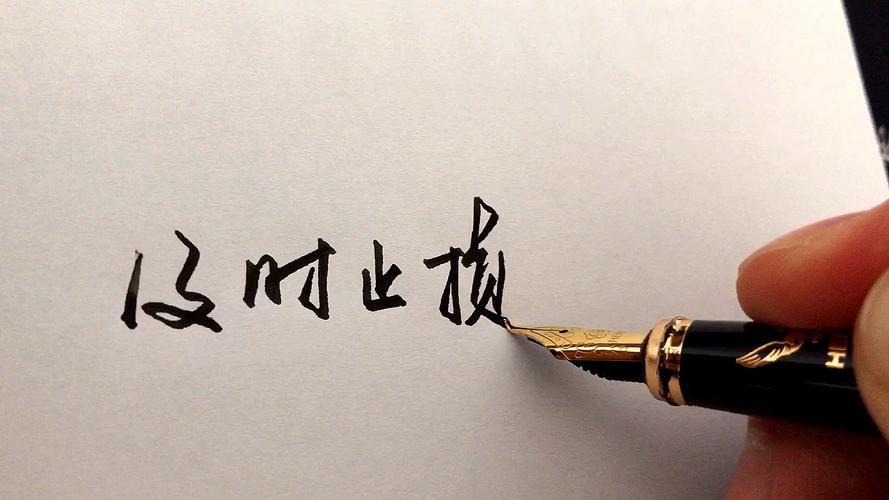 及时止损